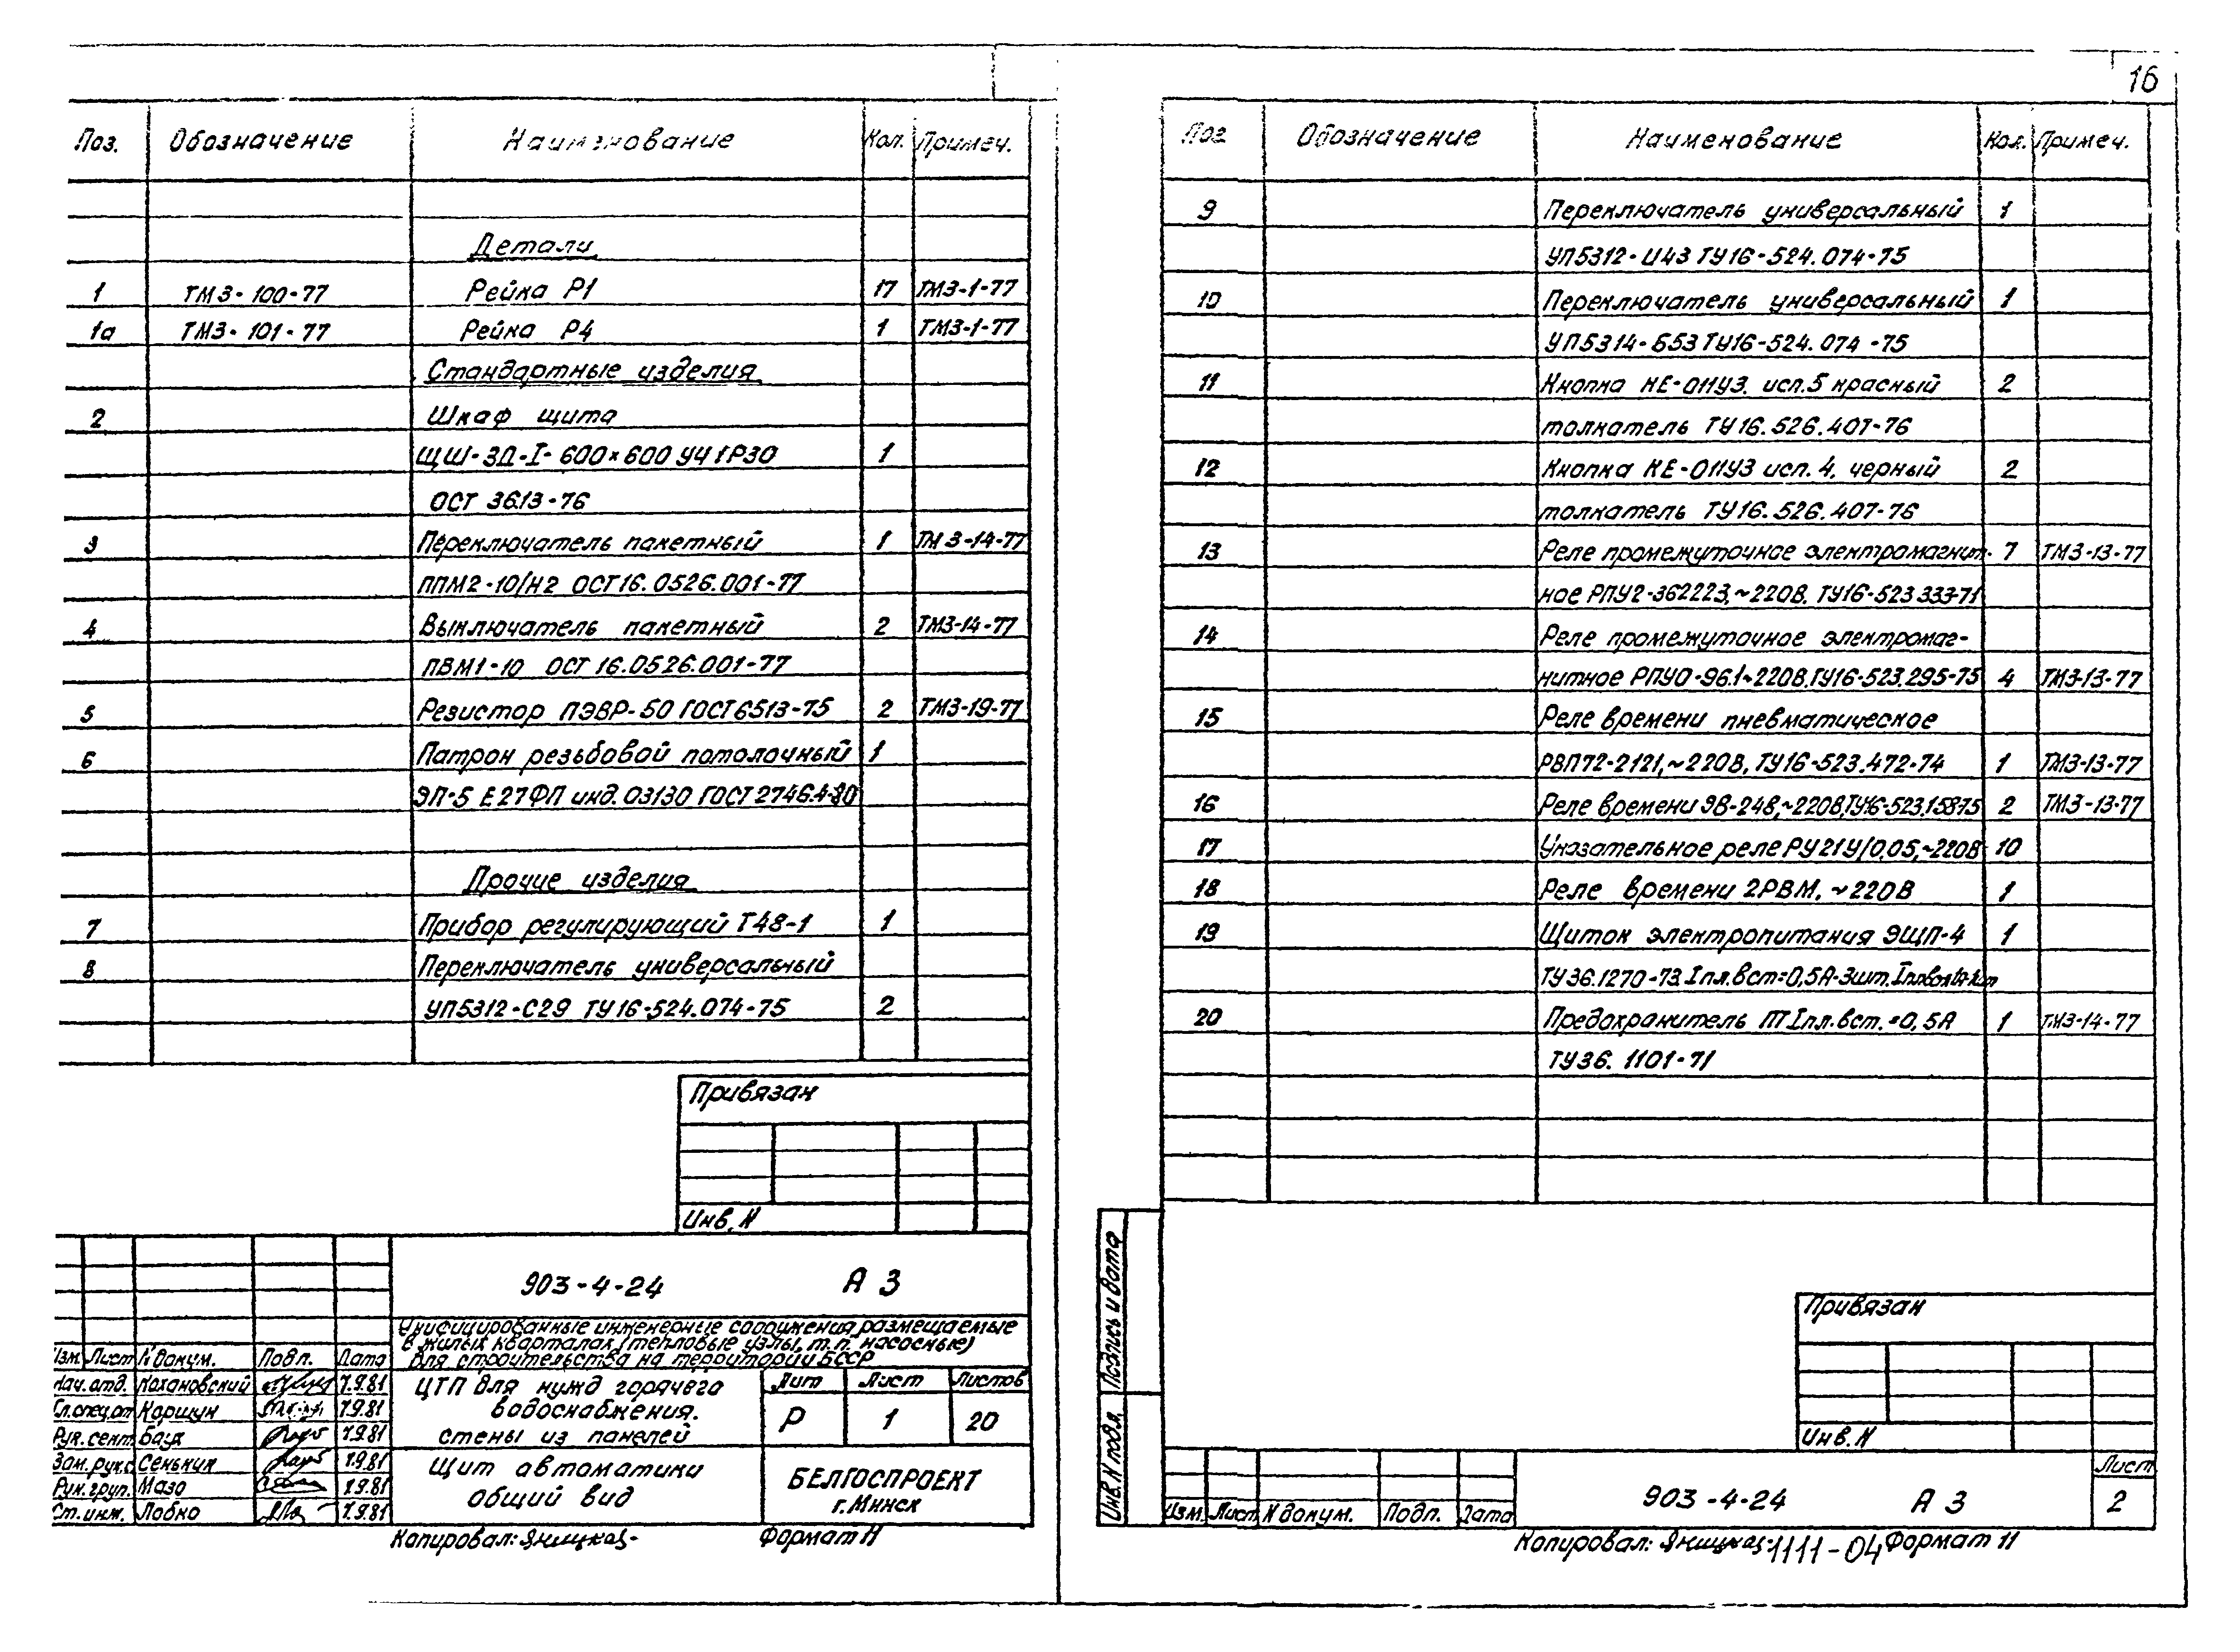 16
Поз. Обозначение Наименование Кол. Примеч.
Детали
1 ТМ3-100-77 Рейка Р1 17 ТМ3-1-77
1а ТМ3-101-77 Рейка Р4 1 ТМ3-1-77
Стандартные изделия
2 Шкаф щита
ЩШ-ЗД-I-600×600 УЧ 1Р30 1
ОСТ 36.13-76
3 Переключатель пакетный 1 ТМ3-14-77
ППМ2-10/Н2 ОСТ16.0526.001-77
4 Выключатель пакетный 2 ТМ3-14-77
ПВМ1-10 ОСТ 16.0526.001-77
5 Резистор ПЭВР-50 ГОСТ 6513-75 2 ТМ3-19-77
6 Патрон резьбовой потолочный 1
ЭП-5 Е27ФП инд. 03130 ГОСТ 2746.4-80
Прочие изделия
7 Прибор регулирующий Т48-1 1
8 Переключатель универсальный
УП5312-С29 ТУ16-524.074-75 2
Привязан
Инв. N
903-4-24 А 3
Унифицированные инженерные сооружения, размещаемые
в жилых кварталах (тепловые узлы, т.п. насосные)
для строительства на территории БССР
Изм. Лист N докум. Подп. Дата
Нач. отд. Кохановский 7.9.81
Гл.спец.от Коршун 7.9.81
Рук. сект. Баух 7.9.81
Зам. рук.с Сенькик 7.9.81
Рук. груп. Мазо 7.9.81
Ст. инж. Лобко 7.9.81
ЦТП для нужд горячего
водоснабжения.
стены из панелей
Лит Лист Листов
Р 1 20
Щит автоматики
общий вид
БЕЛГОСПРОЕКТ
г. Минск
Копировал: Яницкая- Формат 11
Поз. Обозначение Наименование Кол. Примеч.
9 Переключатель универсальный 1
УП5312-И43 ТУ16-524.074-75
10 Переключатель универсальный 1
УП5314-Б53 ТУ16-524.074-75
11 Кнопка КЕ-011У3. исп.5 красный 2
толкатель ТУ16.526.407-76
12 Кнопка КЕ-011У3 исп. 4, черный 2
толкатель ТУ16.526.407-76
13 Реле промежуточное электромагнит- 7 ТМ3-13-77
ное РПУ2-362223,~220В. ТУ16-523.333-71
14 Реле промежуточное электромаг-
нитное РПУ0-961~220В.ТУ16-523.295-75 4 ТМ3-13-77
15 Реле времени пневматическое
РВП72-2121,~220В, ТУ16-523.472-74 1 ТМ3-13-77
16 Реле времени ЭВ-248,~220В,ТУ16-523.158-75 2 ТМ3-13-77
17 Указательное реле РУ21У/0,05,~220В 10
18 Реле времени 2РВМ, ~220В 1
19 Щиток электропитания ЭЩП-4 1
ТУ36.1270-73. Iпл.вст=0,5А-3шт.
20 Предохранитель ПТ Iпл.вст.=0,5А 1 ТМ3-14-77
ТУ36.1101-71
Привязан
Инв. N
Подпись и дата
Инв. N подл.
Изм. Лист N докум. Подп. Дата
903-4-24 А 3
Лист
2
Копировал: Яницкая- 1111-04 Формат 11